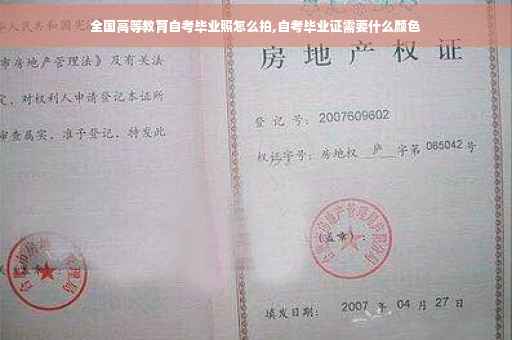 全国高等教育自考毕业照怎么拍,自考毕业证需要什么颜色
华人民共和国宪
市房地产管理法》及有关法
定，对权利人申请登记本证所
审查属实，准予登记，特发此
房地产权证
登记号：2007609602
权证字号：房地权 庐 字第 065042 号
(盖章)：
填发日期：2007 年 04 月 27 日